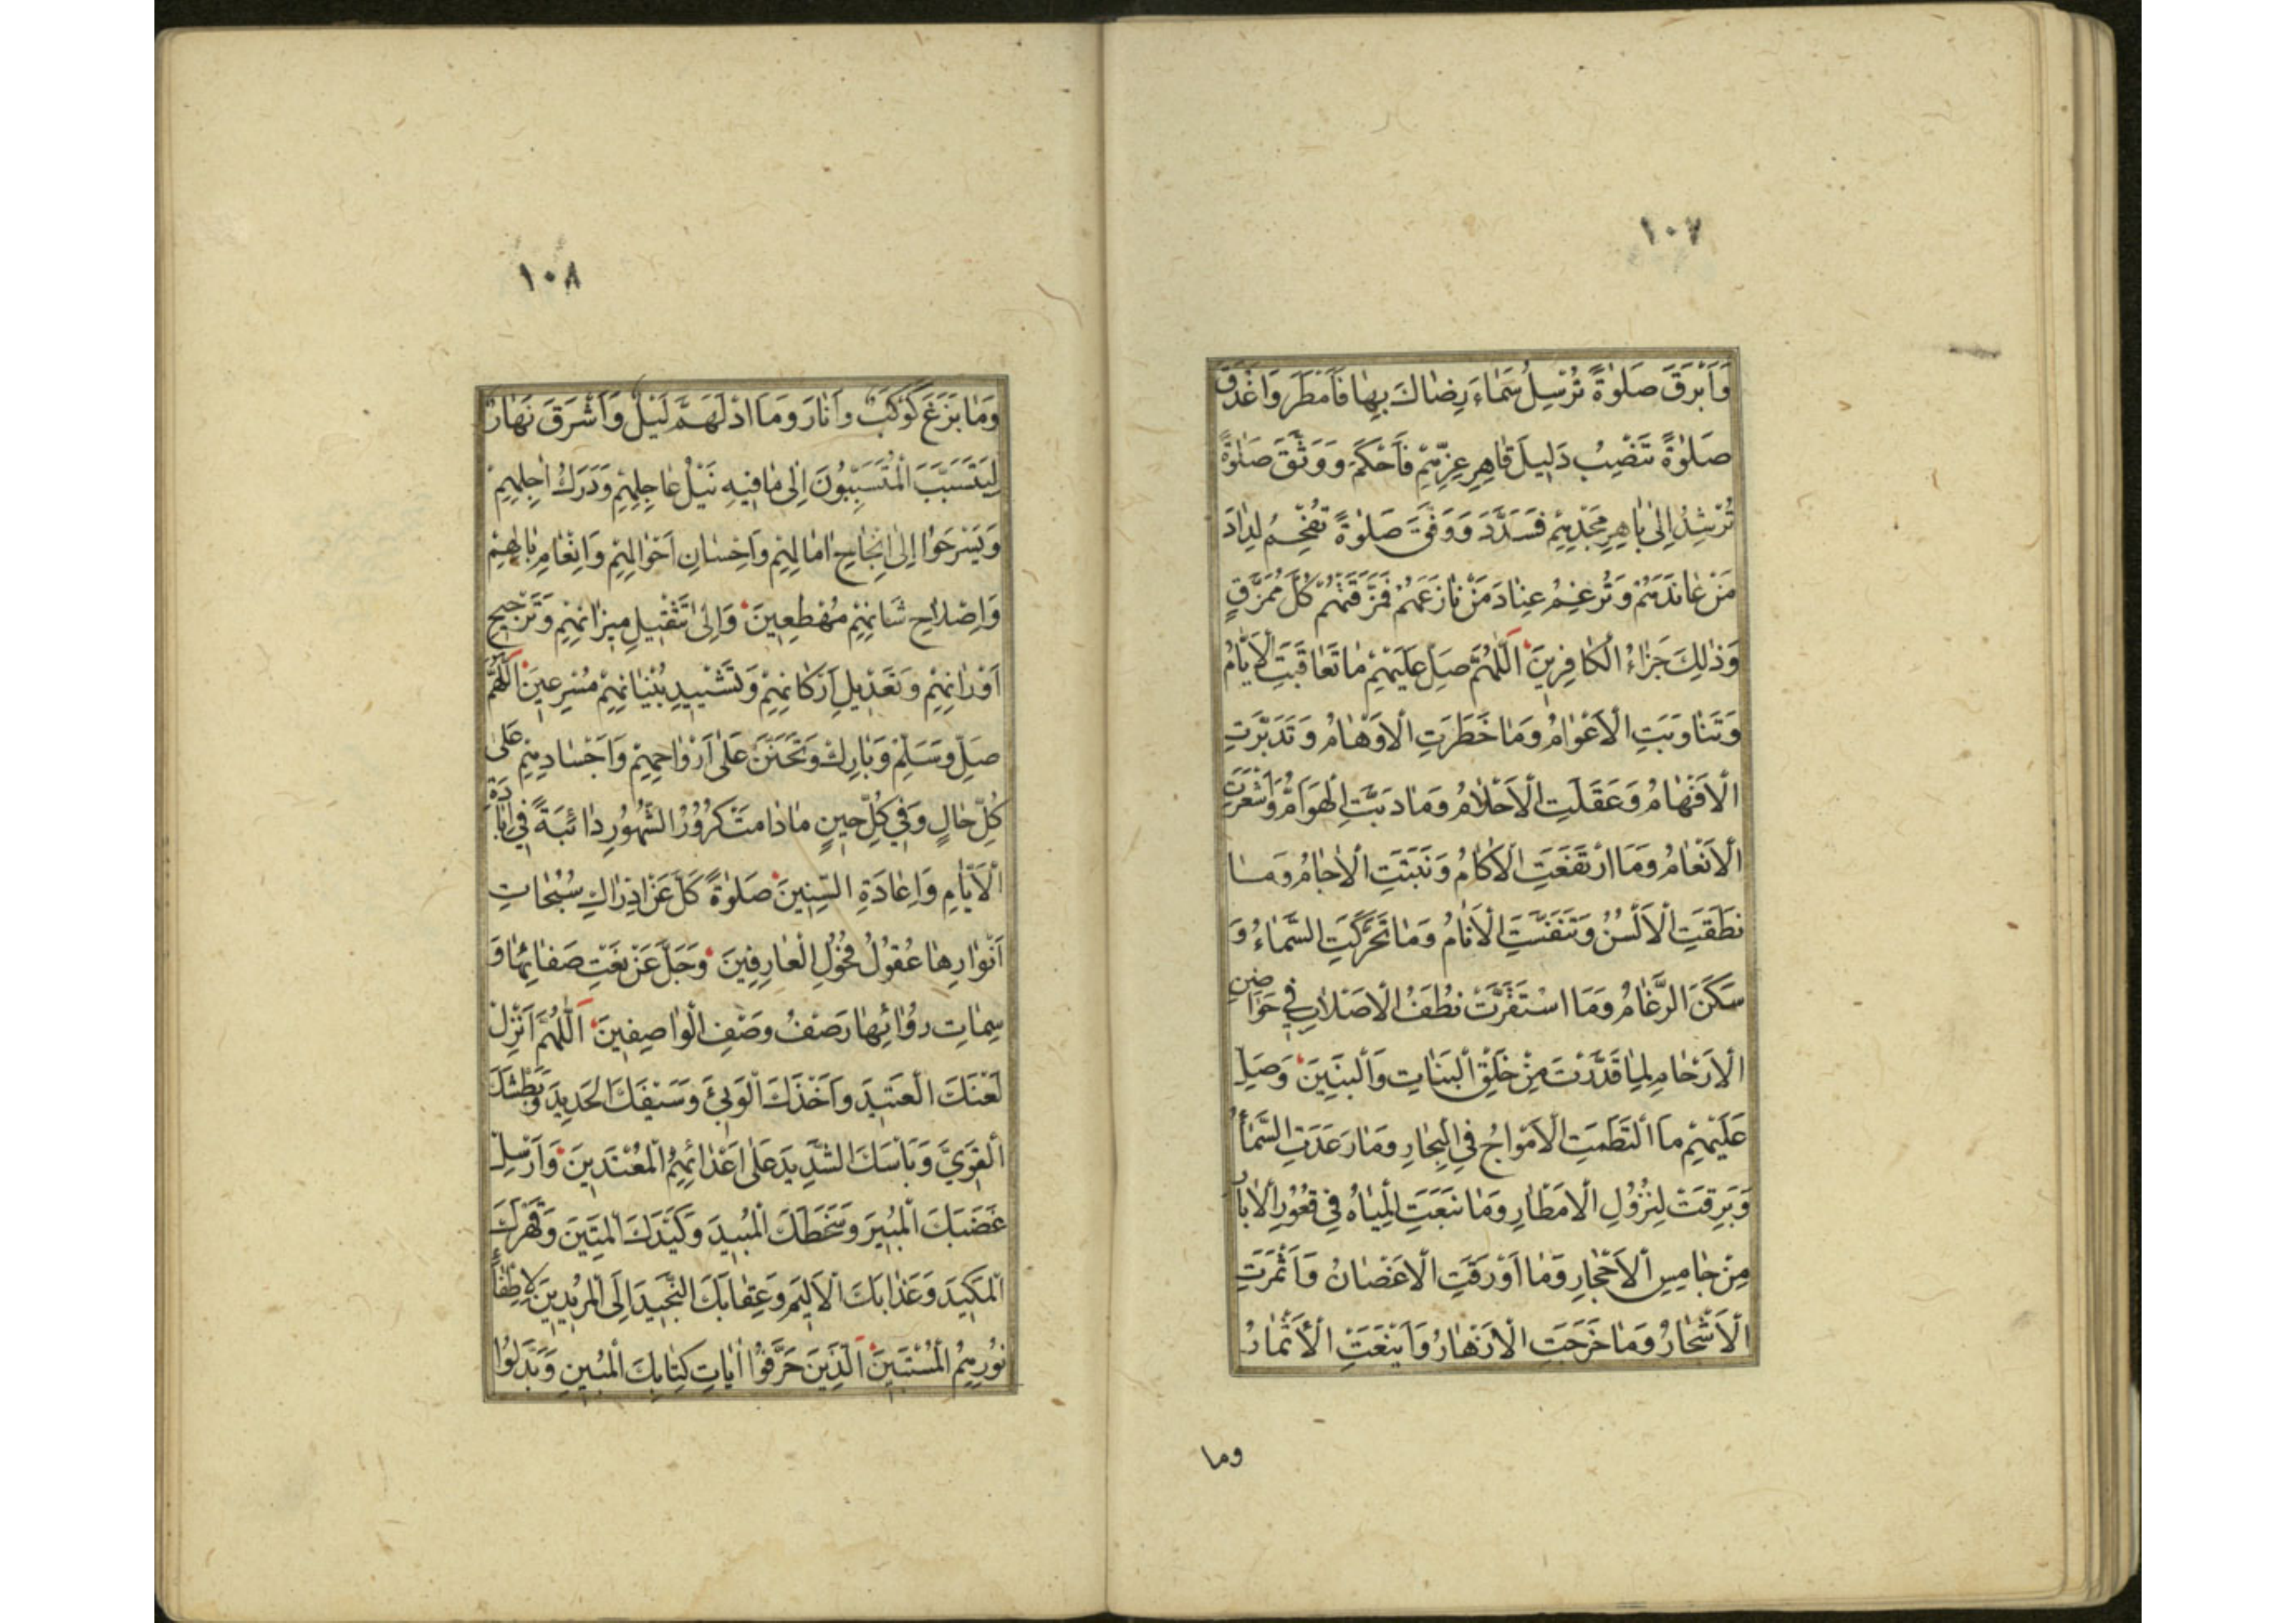 ١٠٧
وَاَبْرَقَ صَلوٰةً تُرْسِلُ سَمٰاءَ رِضٰاكَ بِهٰا فَاَمْطَرَ وَاَغْدَقَ
صَلوٰةً تَنْصِبُ دَلِيلَ قٰاهِرِ عِزِّهِمْ فَاَحْكَمَ وَوَثَّقَ صَلوٰةً
تُرْشِدُ اِلىٰ بٰاهِرِ مَجْدِهِمْ فَسَدَّدَ وَوَفَّقَ صَلوٰةً تُفْحِمُ لِدٰادَ
مَنْ عٰانَدَهُمْ وَتُرْغِمُ عِنٰادَ مَنْ نٰازَعَهُمْ فَمَزَّقَتْهُمْ كُلَّ مُمَزَّقٍ
وَذٰلِكَ جَزٰاءُ الْكٰافِرِينَ اَللّٰهُمَّ صَلِّ عَلَيْهِمْ مٰا تَعٰاقَبَتِ الْاَيّٰامُ
وَتَنٰاوَبَتِ الْاَعْوٰامُ وَمٰا خَطَرَتِ الْاَوْهٰامُ وَتَدَبَّرَتِ
الْاَفْهٰامُ وَعَقَلَتِ الْاَحْلٰامُ وَمٰا دَبَّتِ الْهَوَامُّ وَاَشْعَرَتِ
الْاَنْعٰامُ وَمَا ارْتَفَعَتِ الْاٰكٰامُ وَنَبَتَتِ الْاٰجٰامُ وَمٰا
نَطَقَتِ الْاَلْسُنُ وَتَنَفَّسَتِ الْاَنٰامُ وَمٰا تَحَرَّكَتِ السَّمٰاءُ وَ
سَكَنَ الرَّغٰامُ وَمَا اسْتَقَرَّتْ نُطَفُ الْاَصْلٰابِ فِي حَوَاضِنِ
الْاَرْحٰامِ لِمٰا قَدَّرْتَ مِنْ خَلْقِ الْبَنٰاتِ وَالْبَنِينَ وَصَلِّ
عَلَيْهِمْ مَا الْتَطَمَتِ الْاَمْوٰاجُ فِي الْبِحٰارِ وَمٰا رَعَدَتِ السَّمٰاءُ
وَبَرِقَتْ لِنُزُولِ الْاَمْطٰارِ وَمٰا نَبَعَتِ الْمِيٰاهُ فِي قُعُورِ الْاٰبٰارِ
مِنْ جٰامِسِ الْاَحْجٰارِ وَمٰا اَوْرَقَتِ الْاَغْصٰانُ وَاَثْمَرَتِ
الْاَشْجٰارُ وَمٰا خَرَجَتِ الْاَزْهٰارُ وَاَيْنَعَتِ الْاَثْمٰارُ
وما
١٠٨
وَمٰا بَزَغَ كَوْكَبٌ وَاَنٰارَ وَمَا ادْلَهَمَّ لَيْلٌ وَاَشْرَقَ نَهٰارٌ
لِيَتَسَبَّبَ الْمُتَسَبِّبُونَ اِلىٰ مٰا فِيهِ نَيْلُ عٰاجِلِهِمْ وَدَرَكُ اٰجِلِهِمْ
وَيَسْرَحُوا اِلىٰ اِنْجٰاحِ اٰمٰالِهِمْ وَاِحْسٰانِ اَحْوٰالِهِمْ وَاِنْعٰامِ بٰالِهِمْ
وَاِصْلٰاحِ شَانِهِمْ مُهْطِعِينَ وَاِلىٰ تَثْقِيلِ مِيزٰانِهِمْ وَتَرْجِيحِ
اَوْزٰانِهِمْ وَتَعْدِيلِ اَرْكٰانِهِمْ وَتَشْيِيدِ بُنْيٰانِهِمْ مُسْرِعِينَ اَللّٰهُمَّ
صَلِّ وَسَلِّمْ وَبٰارِكْ وَتَحَنَّنْ عَلىٰ اَرْوٰاحِهِمْ وَاَجْسٰادِهِمْ عَلىٰ
كُلِّ حٰالٍ وَفِي كُلِّ حِينٍ مٰا دٰامَتْ كُرُورُ الشُّهُورِ دٰائِبَةً فِي اِبٰادَةِ
الْاَيّٰامِ وَاِعٰادَةِ السِّنِينَ صَلوٰةً كَلَّ عَنْ اِدْرٰاكِ سُبُحٰاتِ
اَنْوٰارِهٰا عُقُولُ فُحُولِ الْعٰارِفِينَ وَجَلَّ عَنْ نَعْتِ صَفٰائِهٰا وَ
سِمٰاتِ رُوٰائِهٰا رَصْفُ وَصْفِ الْوٰاصِفِينَ اَللّٰهُمَّ اَنْزِلْ
لَعْنَكَ الْعَتِيدَ وَاَخْذَكَ الْوَبِيَّ وَسَيْفَكَ الْحَدِيدَ وَبَطْشَكَ
الْقَوِيَّ وَبَاْسَكَ الشَّدِيدَ عَلىٰ اَعْدٰائِهِمُ الْمُعْتَدِينَ وَاَرْسِلْ
غَضَبَكَ الْمُبِيرَ وَسَخَطَكَ الْمُبِيدَ وَكَيْدَكَ الْمَتِينَ وَقَهْرَكَ
الْمَكِيدَ وَعَذٰابَكَ الْاَلِيمَ وَعِقٰابَكَ اِلَى الْمُرِيدِينَ لِاِطْفٰاءِ
نُورِهِمُ الْمُسْتَبِينَ اَلَّذِينَ حَرَّفُوا اٰيٰاتِ كِتٰابِكَ الْمُبِينِ وَبَدَّلُوا